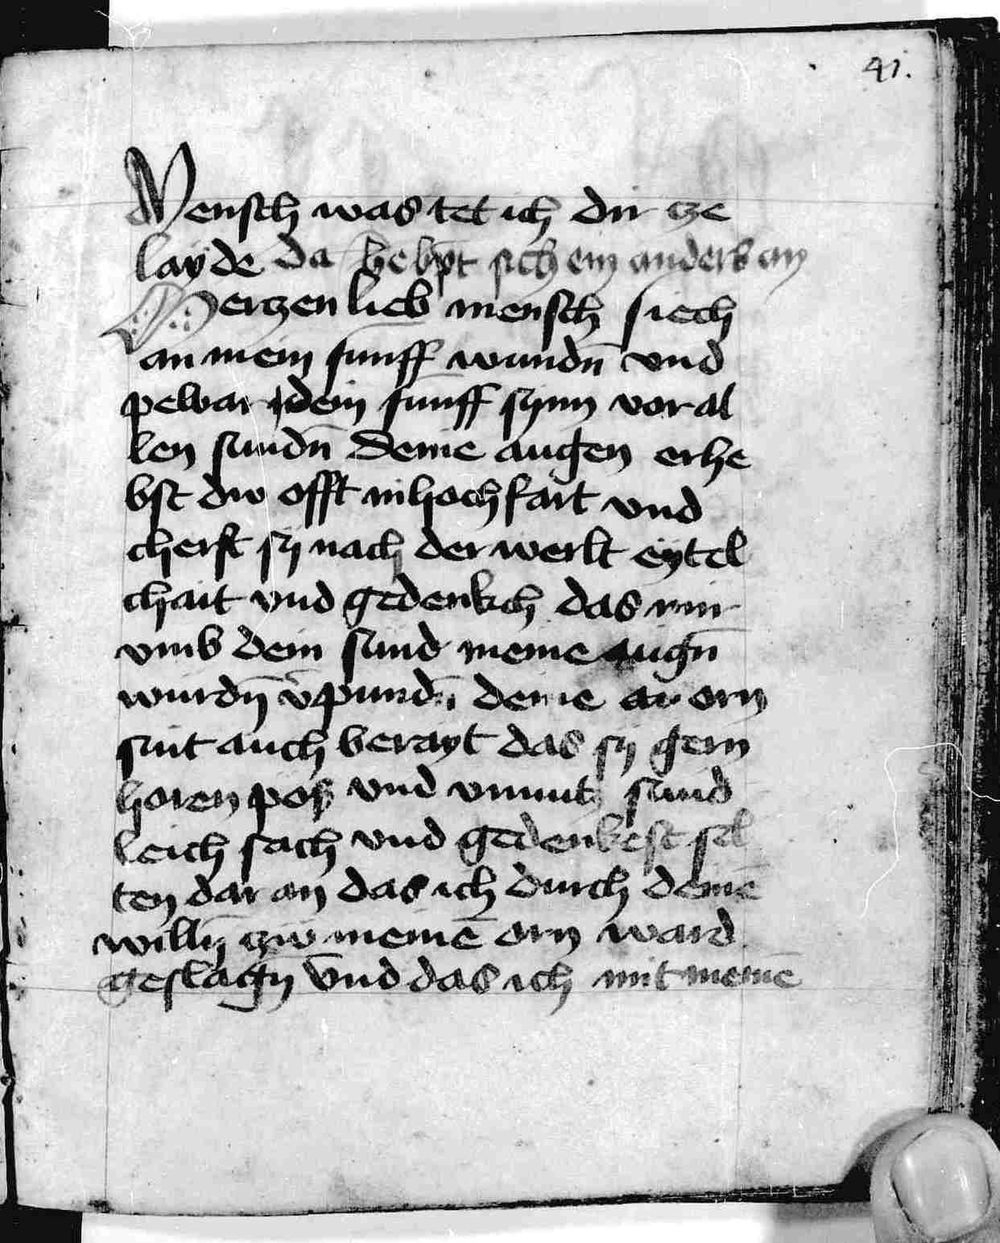 41.
Mensch was tet ich dir cze
layde da hebpt sich ein anders an
Herczen lieb mensch siech
an mein funff wundn̄ vnd
pewar dein funff synn vor al
len sundn̄ Deine augen erhe
bst dw offt in hochfart vnd
cherst sy nach der werlt eytel
chait vnd gedenkch das mir
vmb dein sund meine augn̄
wurdn̄ v̄pundn̄ deine orn
sint auch berayt das sy gern
horen posz vnd vnnucz sund
leich sach vnd gedenkest sel
ten dar an das ich durch deinē
willn̄ czw meinē orn ward
geslagn̄ vnd das ich mit meinē